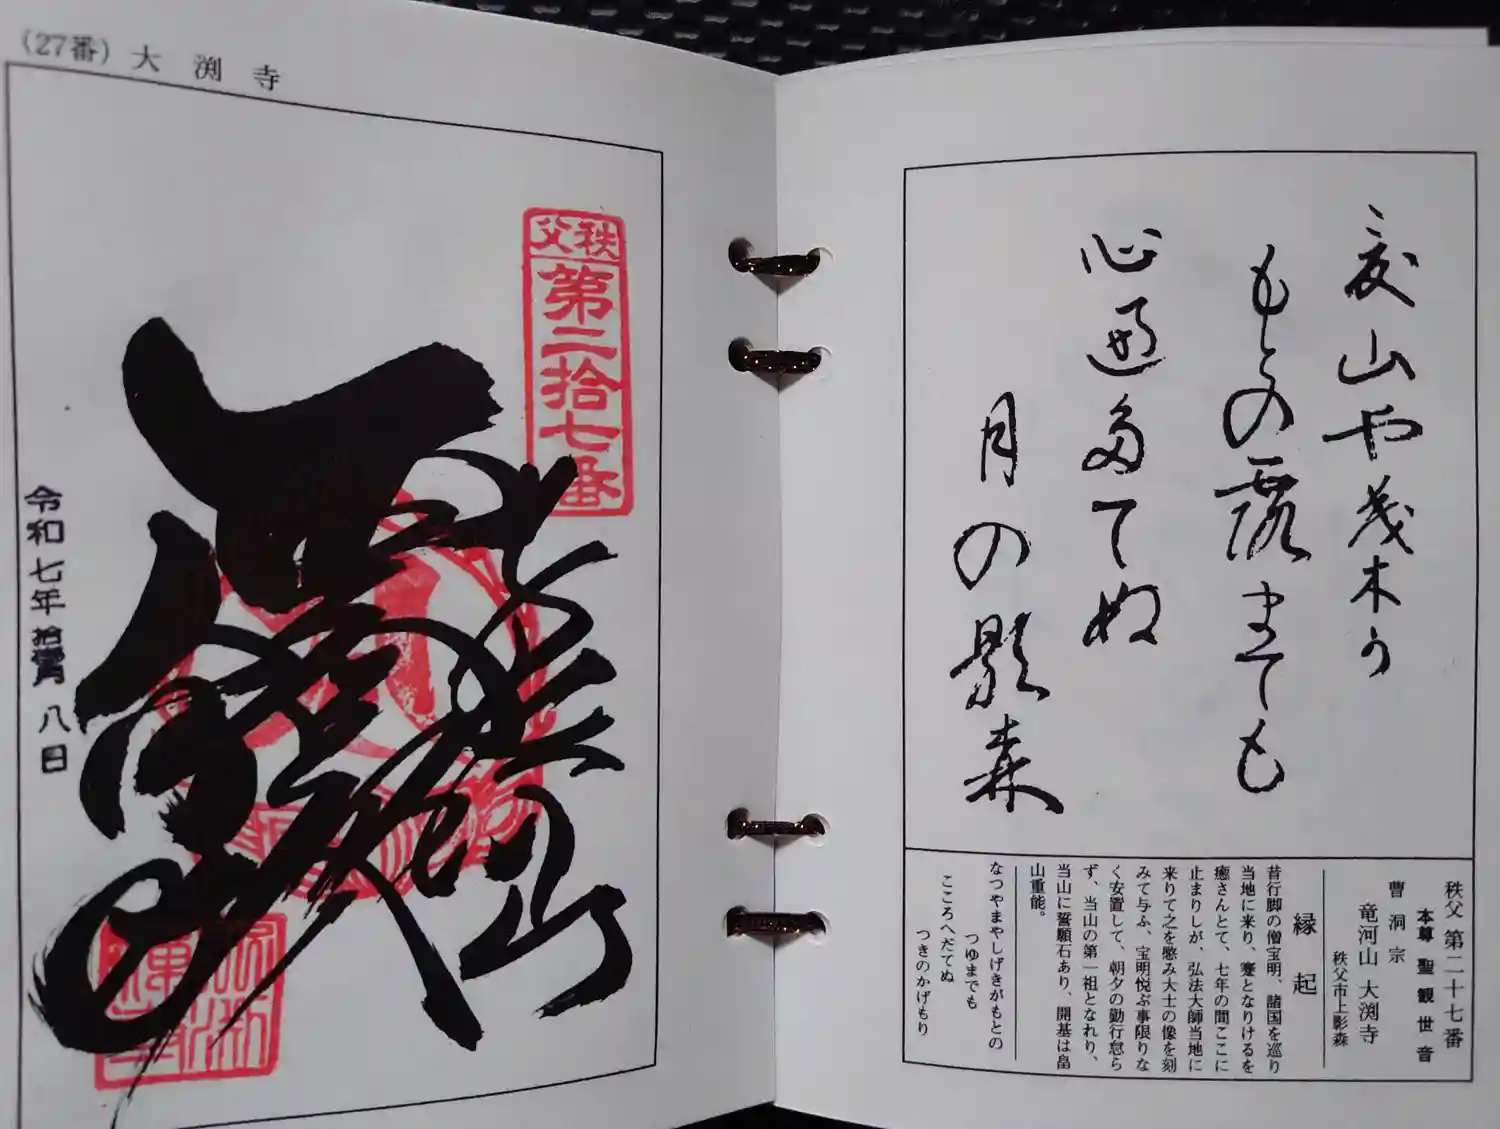 （27番）大渕寺
秩父
第二拾七番
令和七年拾貳月八日
夏山や茂木う
もとの露までも
心遍多てぬ
月の影森
秩父 第二十七番
本尊 聖観世音
曹洞宗
竜河山 大渕寺
秩父市上影森
縁起
昔行脚の僧宝明、諸国を巡り
当地に来り、蹇となりけるを
癒さんとて、七年の間ここに
止まりしが、弘法大師当地に
来りて之を愍み大士の像を刻
みて与ふ、宝明悦ぶ事限りな
く安置して、朝夕の勤行怠ら
ず、当山の第一祖となれり、
当山に誓願石あり、開基は畠
山重能。
なつやまやしげきがもとの
つゆまでも
こころへだてぬ
つきのかげもり